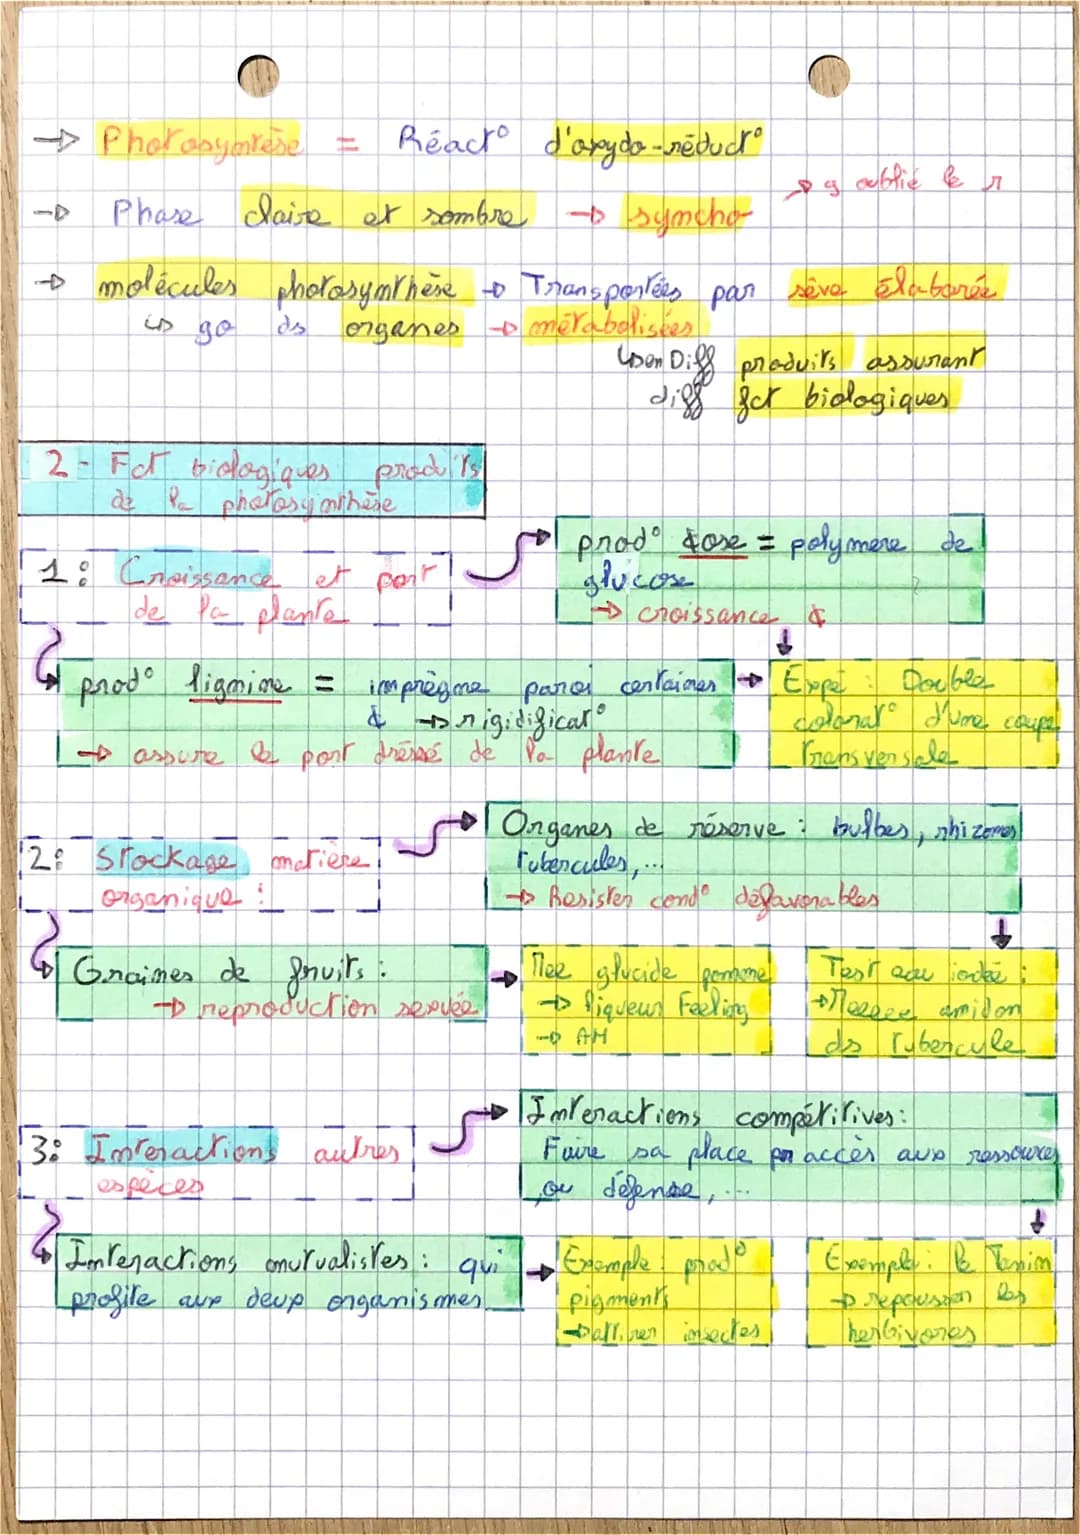 → Photosymtèse = Réact° d'oxydo-réduct°
→ g oublié le r
→ Phase claire et sombre → symcho
→ molécules photosymthèse → Transportées par sève élaborée
↳ go ds organes → métabolisées
↳ en Diff produits assurant
diff fct biologiques
2 - Fct biologiques produits
de la photosymthèse
1: Croissance et port
de la plante
prod° ¢ose = polymere de
glucose
→ croissance ¢
prod° ligmime = imprègme paroi certaimes
¢ → rigidificat°
→ assure le port dréssé de la plante
Expé : Double
colorat° d'une coupe
transversale
2: Stockage matière
organique :
Organes de réserve : bulbes, rhizomes
tubercules, ...
→ Resister cond° défavorables
Graimes de fruits :
→ reproduction sexuée
Mee glucide pomme
→ liqueur Feeling
→ AH
Test eau iodée :
→ Meeee amidon
ds tubercule
3: Interactions autres
espèces
Interactions compétitives:
Faire sa place pr accès aux ressources
ou défense, ...
Interactions mutualistes : qui
profite aux deux organismes
Exemple : prod°
pigments
→ attirer insectes
Exemple : le Tanim
→ repousser les
herbivores